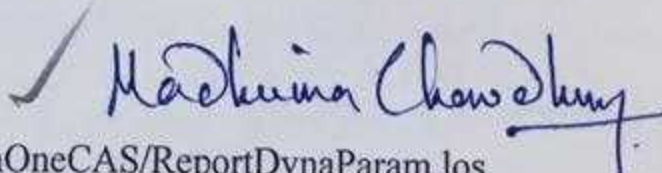 Madhuima Chowdhury
nOneCAS/ReportDynaParam.los